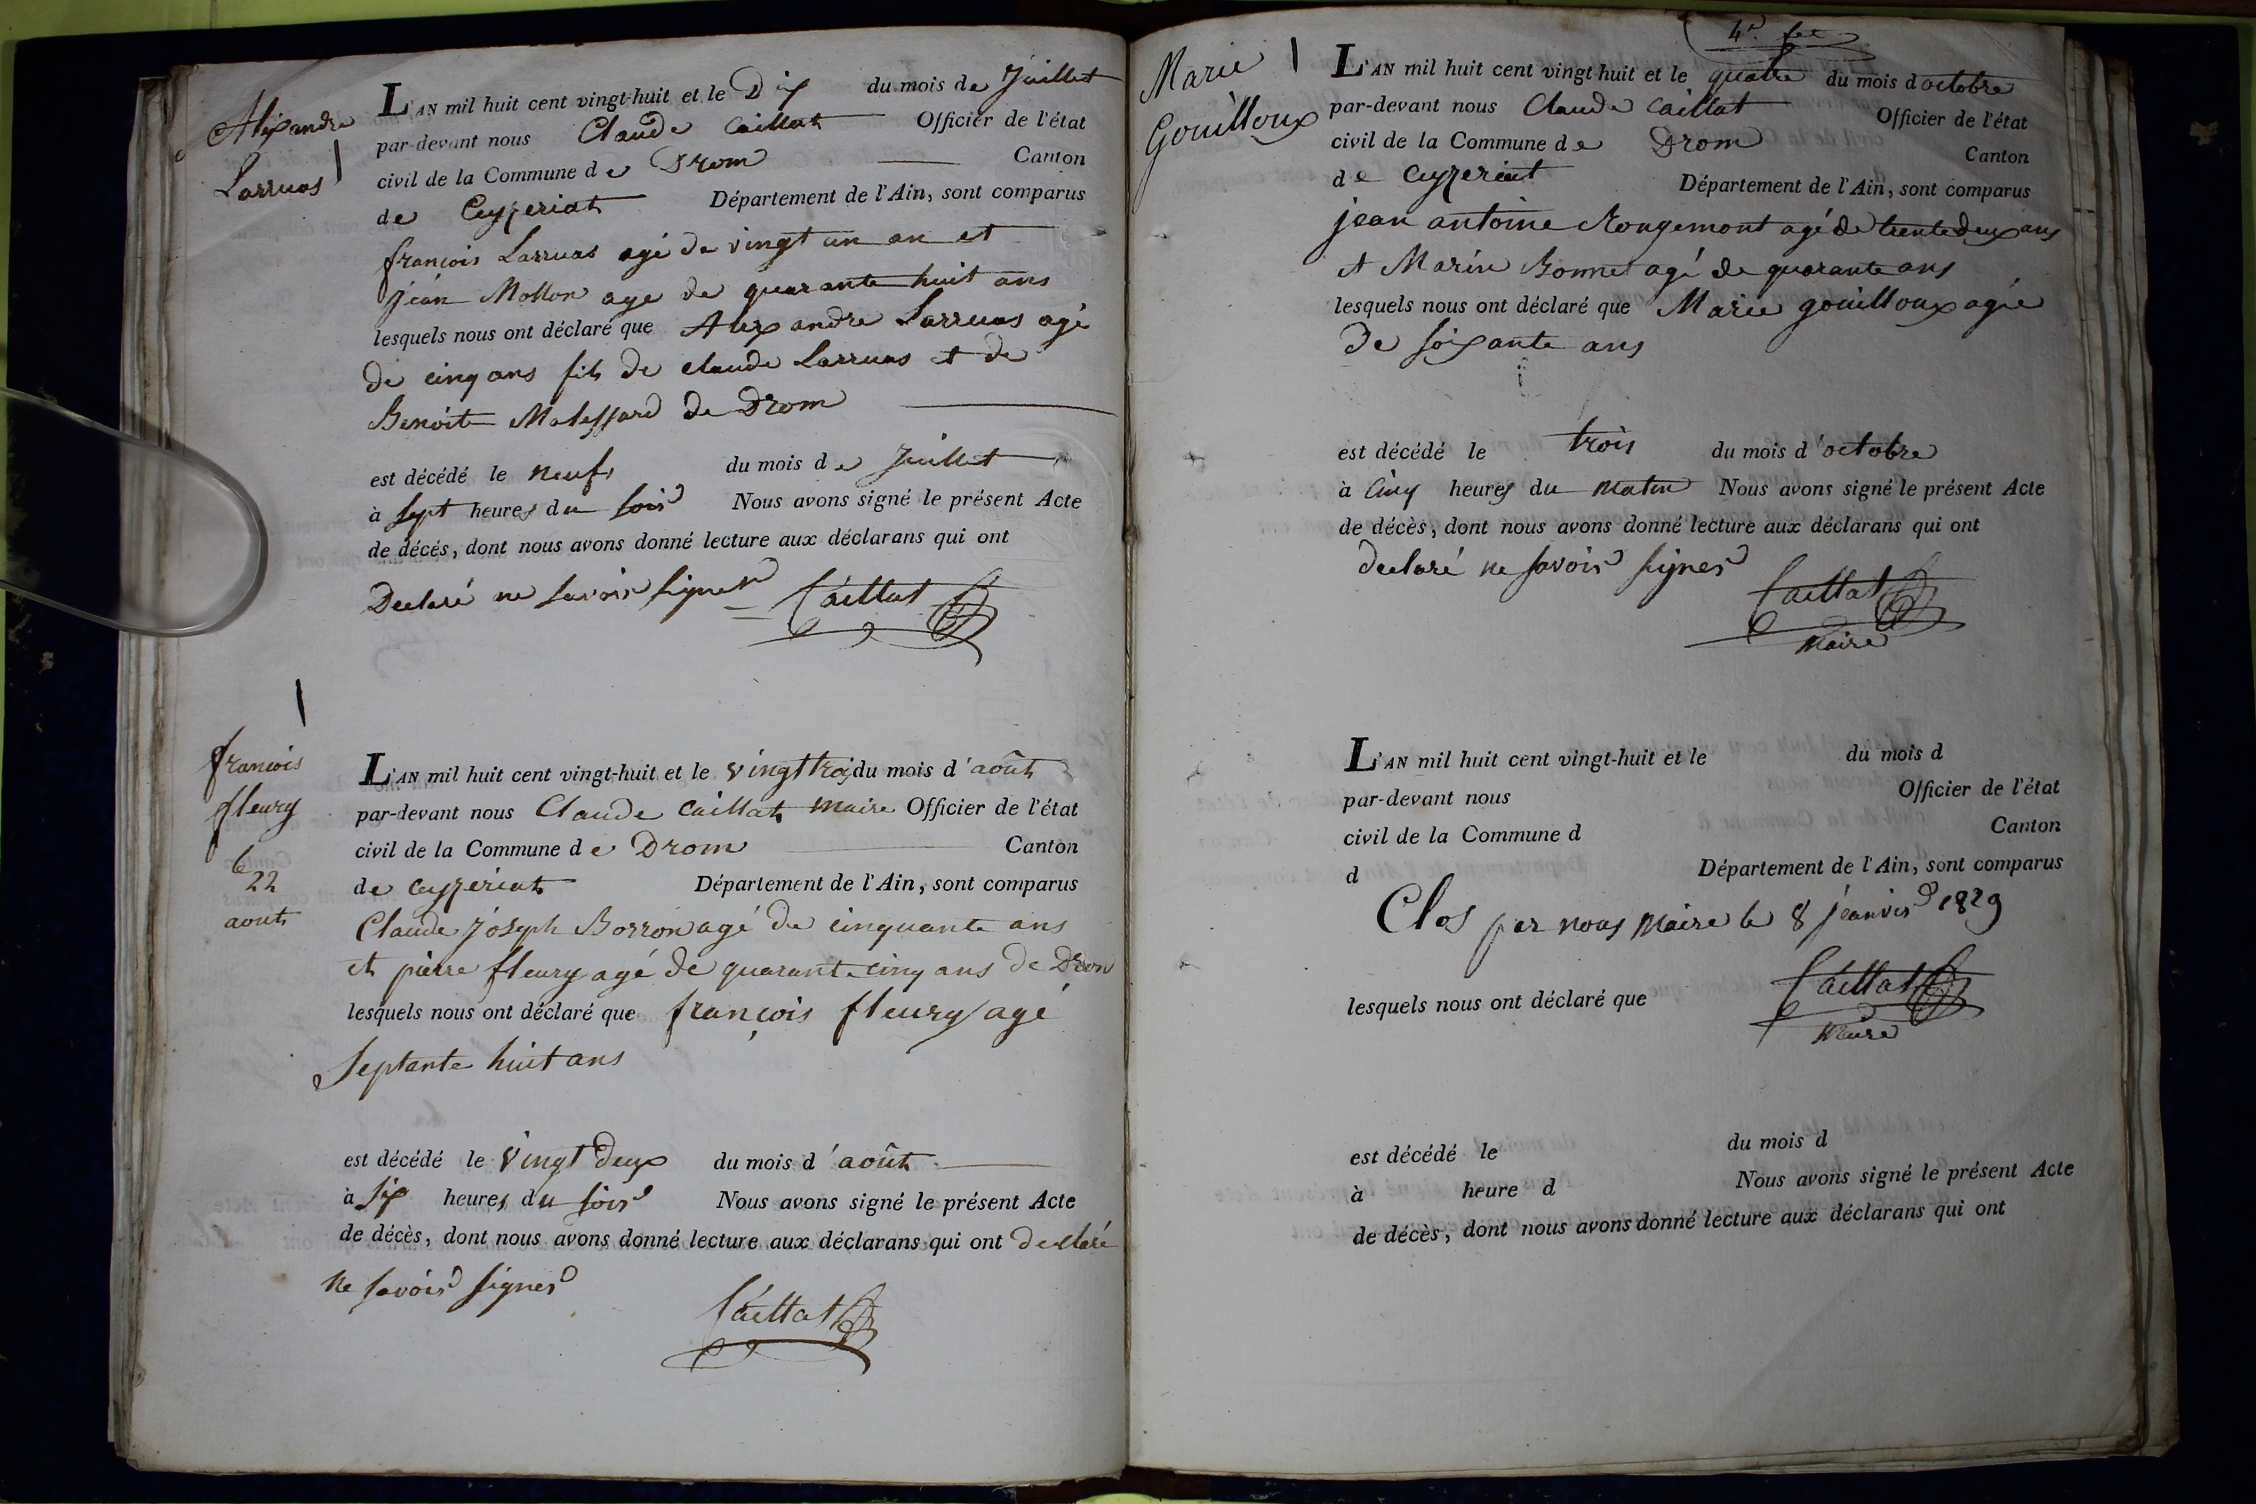 Alexandre
Larruas
L'AN mil huit cent vingt-huit et le Dix du mois de Juillet
par-devant nous Claude Caillat Officier de l'état
civil de la Commune de Drom Canton
de Ceyzeriat Département de l'Ain, sont comparus
françois Larruas agé de vingt un an et
jean Mollon agé de quarante huit ans
lesquels nous ont déclaré que Alexandre Larruas agé
de cinq ans fils de claude Larruas et de
Benoite Malessard de Drom
est décédé le neuf du mois de Juillet
à sept heures du soir Nous avons signé le présent Acte
de décès, dont nous avons donné lecture aux déclarans qui ont
Declaré ne savoir signer Caillat
françois
fleury
le
22
aout
L'AN mil huit cent vingt-huit et le vingt trois du mois d'août
par-devant nous Claude Caillat maire Officier de l'état
civil de la Commune de Drom Canton
de Ceyzeriat Département de l'Ain, sont comparus
Claude Joseph Borron agé de cinquante ans
et pierre fleury agé de quarante cinq ans de Drom
lesquels nous ont déclaré que françois fleury agé
Septante huit ans
est décédé le vingt deux du mois d'août
à six heures du soir Nous avons signé le présent Acte
de décès, dont nous avons donné lecture aux déclarans qui ont declaré
ne savoir signer
Caillat
Marie
Gouilloux
L'AN mil huit cent vingt-huit et le quatre du mois doctobre
par-devant nous Claude Caillat Officier de l'état
civil de la Commune de Drom Canton
de Ceyzeriat Département de l'Ain, sont comparus
jean antoine Rougemont agé de trente deux ans
et Marin Bonnet agé de quarante ans
lesquels nous ont déclaré que Marie gouilloux agée
de soixante ans
est décédé le trois du mois d'octobre
à Cinq heures du matin Nous avons signé le présent Acte
de décès, dont nous avons donné lecture aux déclarans qui ont
declaré ne savoir signer
Caillat
Maire
L'AN mil huit cent vingt-huit et le du mois d
par-devant nous Officier de l'état
civil de la Commune d Canton
d Département de l'Ain, sont comparus
Clos par nous Maire le 8 jeanvier 1829
lesquels nous ont déclaré que Caillat
Maire
est décédé le du mois d
à heure d Nous avons signé le présent Acte
de décès, dont nous avons donné lecture aux déclarans qui ont